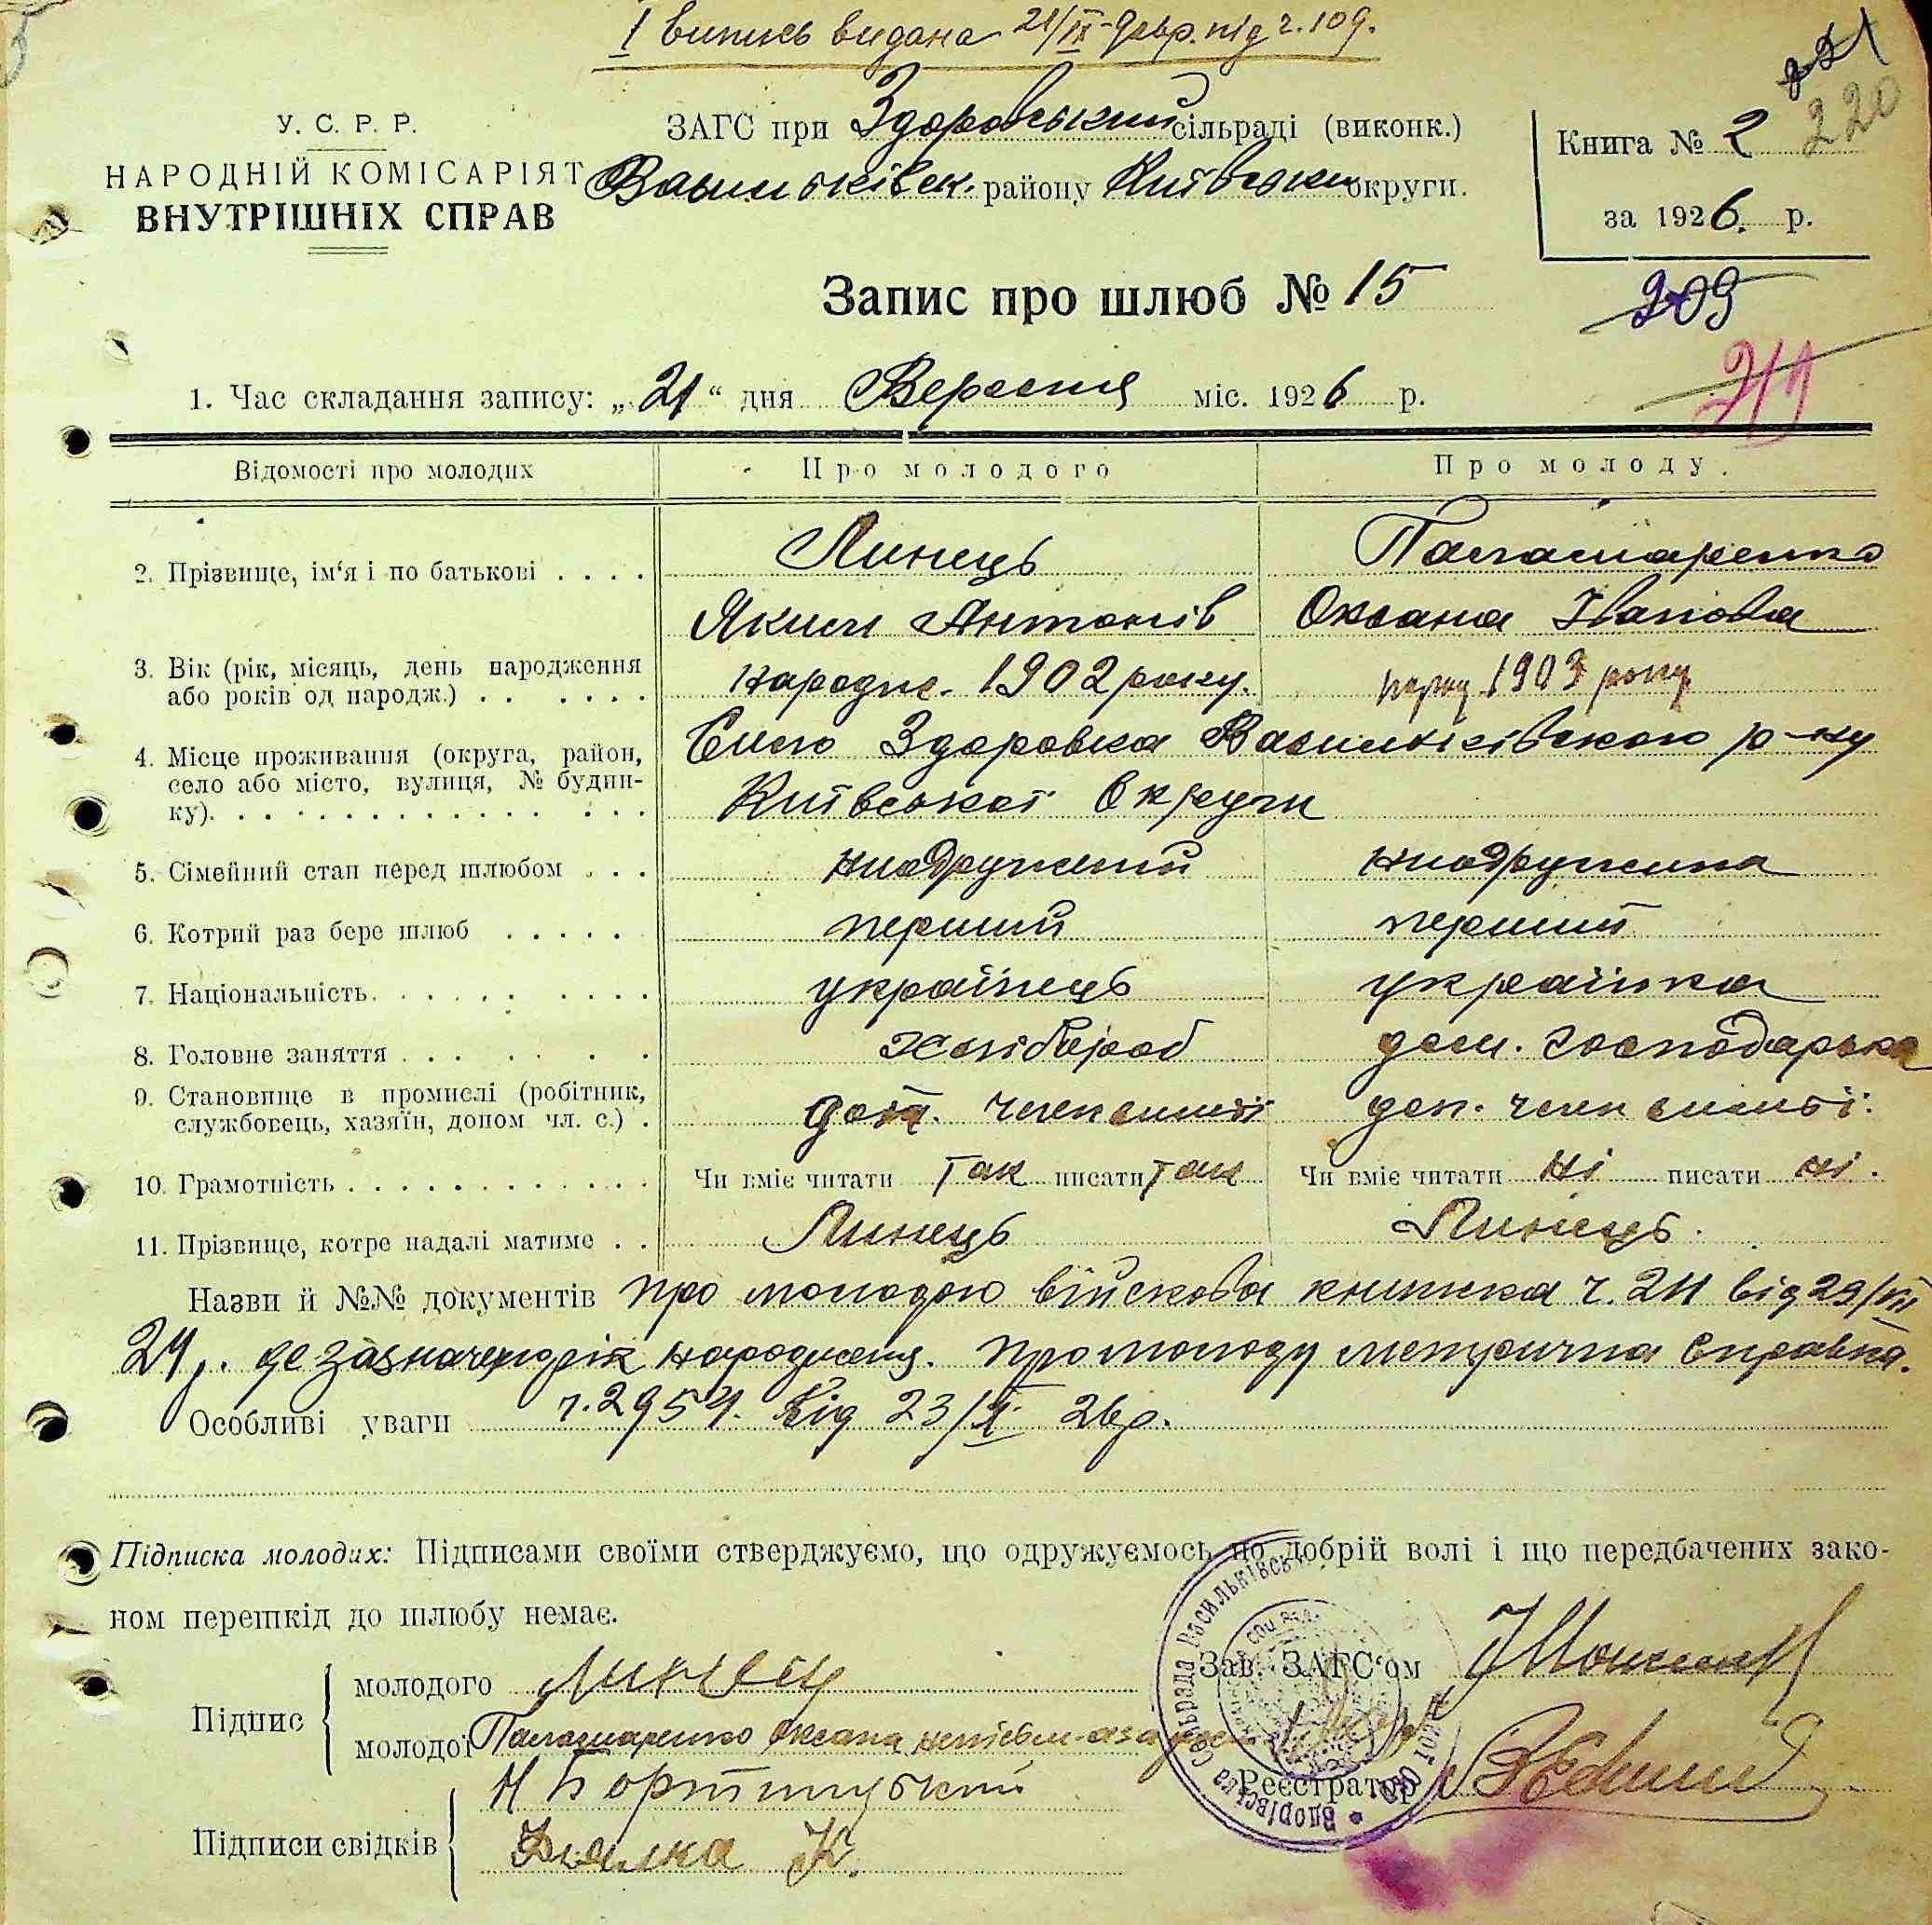 І випись видана 21/IX- під ч. 109.
221
220
У. С. Р. Р.
НАРОДНІЙ КОМІСАРІЯТ
ВНУТРІШНІХ СПРАВ
ЗАГС при Здоровський сільраді (виконк.)
Васильківськ. району Київськи округи.
Книга № 2
за 1926. р.
209
211
Запис про шлюб № 15
1. Час складання запису: „21“ дня Вересня міс. 1926 р.
Відомості про молодих Про молодого Про молоду.
2. Прізвище, ім‘я і по батькові . . . . Линець Паламаренко
Яким Антонів Оксана Іванова
3. Вік (рік, місяць, день народження
або років од народж.) . . . . . . народж. 1902 року. народ 1903 року
4. Місце проживання (округа, район, Село Здоровка Васильківського р-ну
село або місто, вулиця, № будин-
ку). Київської Округи
5. Сімейний стан перед шлюбом . . . неодружений неодружена
6. Котрий раз бере шлюб . . . . . перший перший
7. Національність. . . . . українець українка
8. Головне заняття . . . . . хлібороб дом. господарька
9. Становище в промислі (робітник,
службовець, хазяїн, допом чл. с.) . доп. член сим'ї доп. член сим'ї.
10. Грамотність . . . . . Чи вміє читати так писати так Чи вміє читати ні писати ні.
11. Прізвище, котре надалі матиме . . Линець Линець.
Назви й №№ документів про молодого війскова книжка ч. 211 від 29/VII
24 р. де зазначено рік народження. про молоду метрична справка.
Особливі уваги ч. 2954. від 23/ 26 р.
Підписка молодих: Підписами своїми стверджуємо, що одружуємось по добрій волі і що передбачених зако-
ном перешкід до шлюбу немає.
Підпис
молодого Линець
молодої Паламаренко Оксана
Підписи свідків
Н
К.
Зав. ЗАГС‘ом
Реєстратор
Здорівська Сельрада Васильківськ